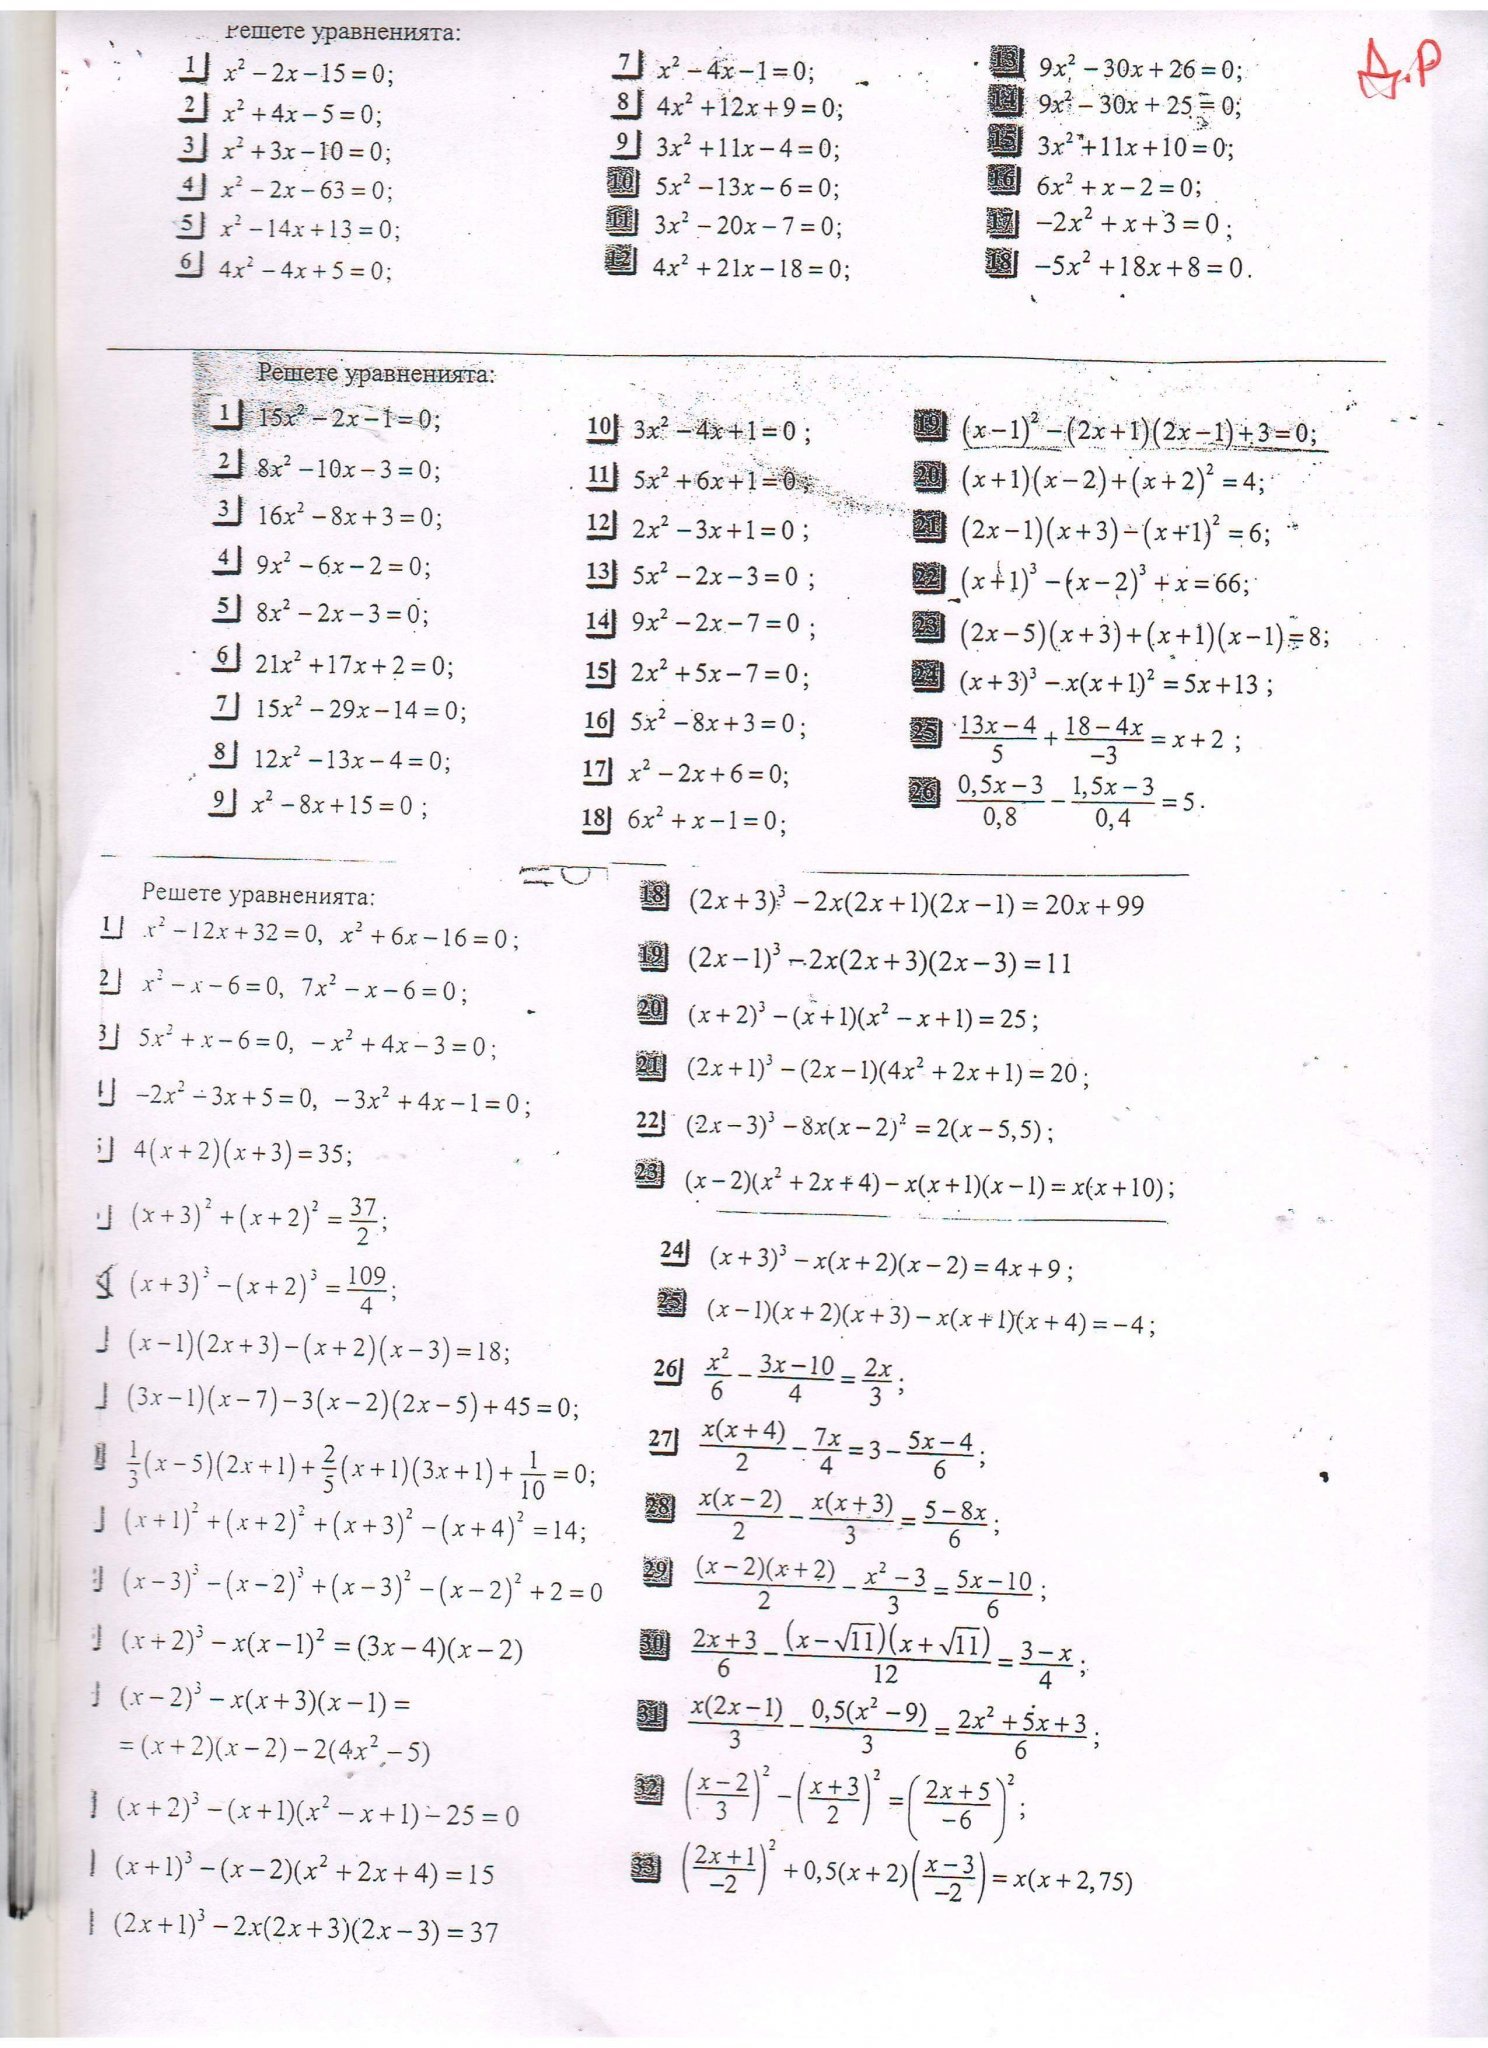 Решете уравненията:
1 x² − 2x − 15 = 0;
2 x² + 4x − 5 = 0;
3 x² + 3x − 10 = 0;
4 x² − 2x − 63 = 0;
5 x² − 14x + 13 = 0;
6 4x² − 4x + 5 = 0;
7 x² − 4x − 1 = 0;
8 4x² + 12x + 9 = 0;
9 3x² + 11x − 4 = 0;
10 5x² − 13x − 6 = 0;
11 3x² − 20x − 7 = 0;
12 4x² + 21x − 18 = 0;
13 9x² − 30x + 26 = 0;
14 9x² − 30x + 25 = 0;
15 3x² + 11x + 10 = 0;
16 6x² + x − 2 = 0;
17 −2x² + x + 3 = 0 ;
18 −5x² + 18x + 8 = 0.
Д.Р
Решете уравненията:
1 15x² − 2x − 1 = 0;
2 8x² − 10x − 3 = 0;
3 16x² − 8x + 3 = 0;
4 9x² − 6x − 2 = 0;
5 8x² − 2x − 3 = 0;
6 21x² + 17x + 2 = 0;
7 15x² − 29x − 14 = 0;
8 12x² − 13x − 4 = 0;
9 x² − 8x + 15 = 0 ;
10 3x² − 4x + 1 = 0 ;
11 5x² + 6x + 1 = 0 ;
12 2x² − 3x + 1 = 0 ;
13 5x² − 2x − 3 = 0 ;
14 9x² − 2x − 7 = 0 ;
15 2x² + 5x − 7 = 0;
16 5x² − 8x + 3 = 0;
17 x² − 2x + 6 = 0;
18 6x² + x − 1 = 0;
19 (x − 1)² − (2x + 1)(2x − 1) + 3 = 0;
20 (x + 1)(x − 2) + (x + 2)² = 4;
21 (2x − 1)(x + 3) − (x + 1)² = 6;
22 (x + 1)³ − (x − 2)³ + x = 66;
23 (2x − 5)(x + 3) + (x + 1)(x − 1) = 8;
24 (x + 3)³ − x(x + 1)² = 5x + 13 ;
25 (13x − 4)/5 + (18 − 4x)/−3 = x + 2 ;
26 (0,5x − 3)/0,8 − (1,5x − 3)/0,4 = 5 .
Решете уравненията:
1 x² − 12x + 32 = 0, x² + 6x − 16 = 0 ;
2 x² − x − 6 = 0, 7x² − x − 6 = 0 ;
3 5x² + x − 6 = 0, −x² + 4x − 3 = 0 ;
−2x² − 3x + 5 = 0, −3x² + 4x − 1 = 0 ;
4(x + 2)(x + 3) = 35;
(x + 3)² + (x + 2)² = 37/2 ;
(x + 3)³ − (x + 2)³ = 109/4 ;
(x − 1)(2x + 3) − (x + 2)(x − 3) = 18;
(3x − 1)(x − 7) − 3(x − 2)(2x − 5) + 45 = 0;
1/3(x − 5)(2x + 1) + 2/5(x + 1)(3x + 1) + 1/10 = 0;
(x + 1)² + (x + 2)² + (x + 3)² − (x + 4)² = 14;
(x − 3)³ − (x − 2)³ + (x − 3)² − (x − 2)² + 2 = 0
(x + 2)³ − x(x − 1)² = (3x − 4)(x − 2)
(x − 2)³ − x(x + 3)(x − 1) =
= (x + 2)(x − 2) − 2(4x² − 5)
(x + 2)³ − (x + 1)(x² − x + 1) − 25 = 0
(x + 1)³ − (x − 2)(x² + 2x + 4) = 15
(2x + 1)³ − 2x(2x + 3)(2x − 3) = 37
18 (2x + 3)³ − 2x(2x + 1)(2x − 1) = 20x + 99
19 (2x − 1)³ − 2x(2x + 3)(2x − 3) = 11
20 (x + 2)³ − (x + 1)(x² − x + 1) = 25 ;
21 (2x + 1)³ − (2x − 1)(4x² + 2x + 1) = 20 ;
22 (2x − 3)³ − 8x(x − 2)² = 2(x − 5,5) ;
23 (x − 2)(x² + 2x + 4) − x(x + 1)(x − 1) = x(x + 10) ;
24 (x + 3)³ − x(x + 2)(x − 2) = 4x + 9 ;
25 (x − 1)(x + 2)(x + 3) − x(x + 1)(x + 4) = −4 ;
26 x²/6 − (3x − 10)/4 = 2x/3 ;
27 x(x + 4)/2 − 7x/4 = 3 − (5x − 4)/6 ;
28 x(x − 2)/2 − x(x + 3)/3 = (5 − 8x)/6 ;
29 (x − 2)(x + 2)/2 − (x² − 3)/3 = (5x − 10)/6 ;
30 (2x + 3)/6 − (x − √11)(x + √11)/12 = (3 − x)/4 ;
31 x(2x − 1)/3 − 0,5(x² − 9)/3 = (2x² + 5x + 3)/6 ;
32 ((x − 2)/3)² − ((x + 3)/2)² = ((2x + 5)/−6)² ;
33 ((2x + 1)/−2)² + 0,5(x + 2)((x − 3)/−2) = x(x + 2,75)